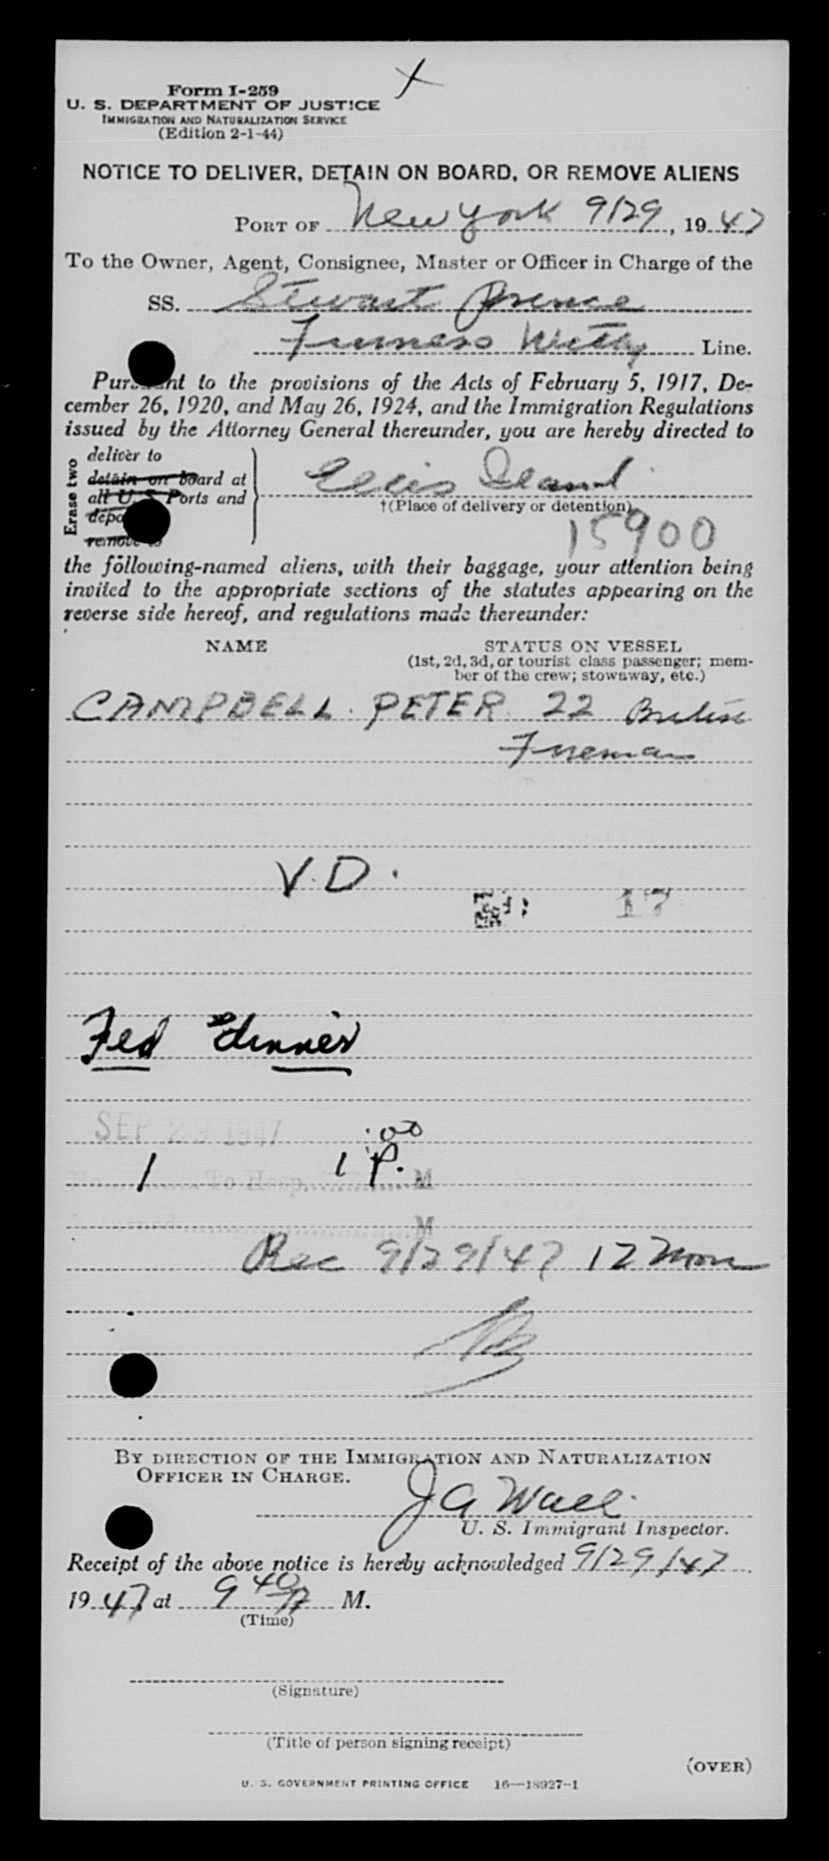 Form I-259
U. S. DEPARTMENT OF JUSTICE
IMMIGRATION AND NATURALIZATION SERVICE
(Edition 2-1-44)
NOTICE TO DELIVER, DETAIN ON BOARD, OR REMOVE ALIENS
PORT OF New York 9/29, 1947
To the Owner, Agent, Consignee, Master or Officer in Charge of the
SS. Stewart Prince
Furness Withy Line.
Pursuant to the provisions of the Acts of February 5, 1917, De-
cember 26, 1920, and May 26, 1924, and the Immigration Regulations
issued by the Attorney General thereunder, you are hereby directed to
Erase two
deliver to
detain on board at
all U. S. Ports and
remove to
Ellis Island
†(Place of delivery or detention)
15900
the following-named aliens, with their baggage, your attention being
invited to the appropriate sections of the statutes appearing on the
reverse side hereof, and regulations made thereunder:
NAME STATUS ON VESSEL
(1st, 2d, 3d, or tourist class passenger; mem-
ber of the crew; stowaway, etc.)
CAMPBELL. PETER 22 British
Fireman
V.D.
17
Fed dinner
SEP 29 1947
:00
1 To Hosp. 1 P. M
M
Rec 9/29/47 12 Noon
BY DIRECTION OF THE IMMIGRATION AND NATURALIZATION
OFFICER IN CHARGE.
J A Wall
U. S. Immigrant Inspector.
Receipt of the above notice is hereby acknowledged 9/29/47
1947 at 9 40 M.
(Time)
(Signature)
(Title of person signing receipt)
(OVER)
U. S. GOVERNMENT PRINTING OFFICE 16—18927-1